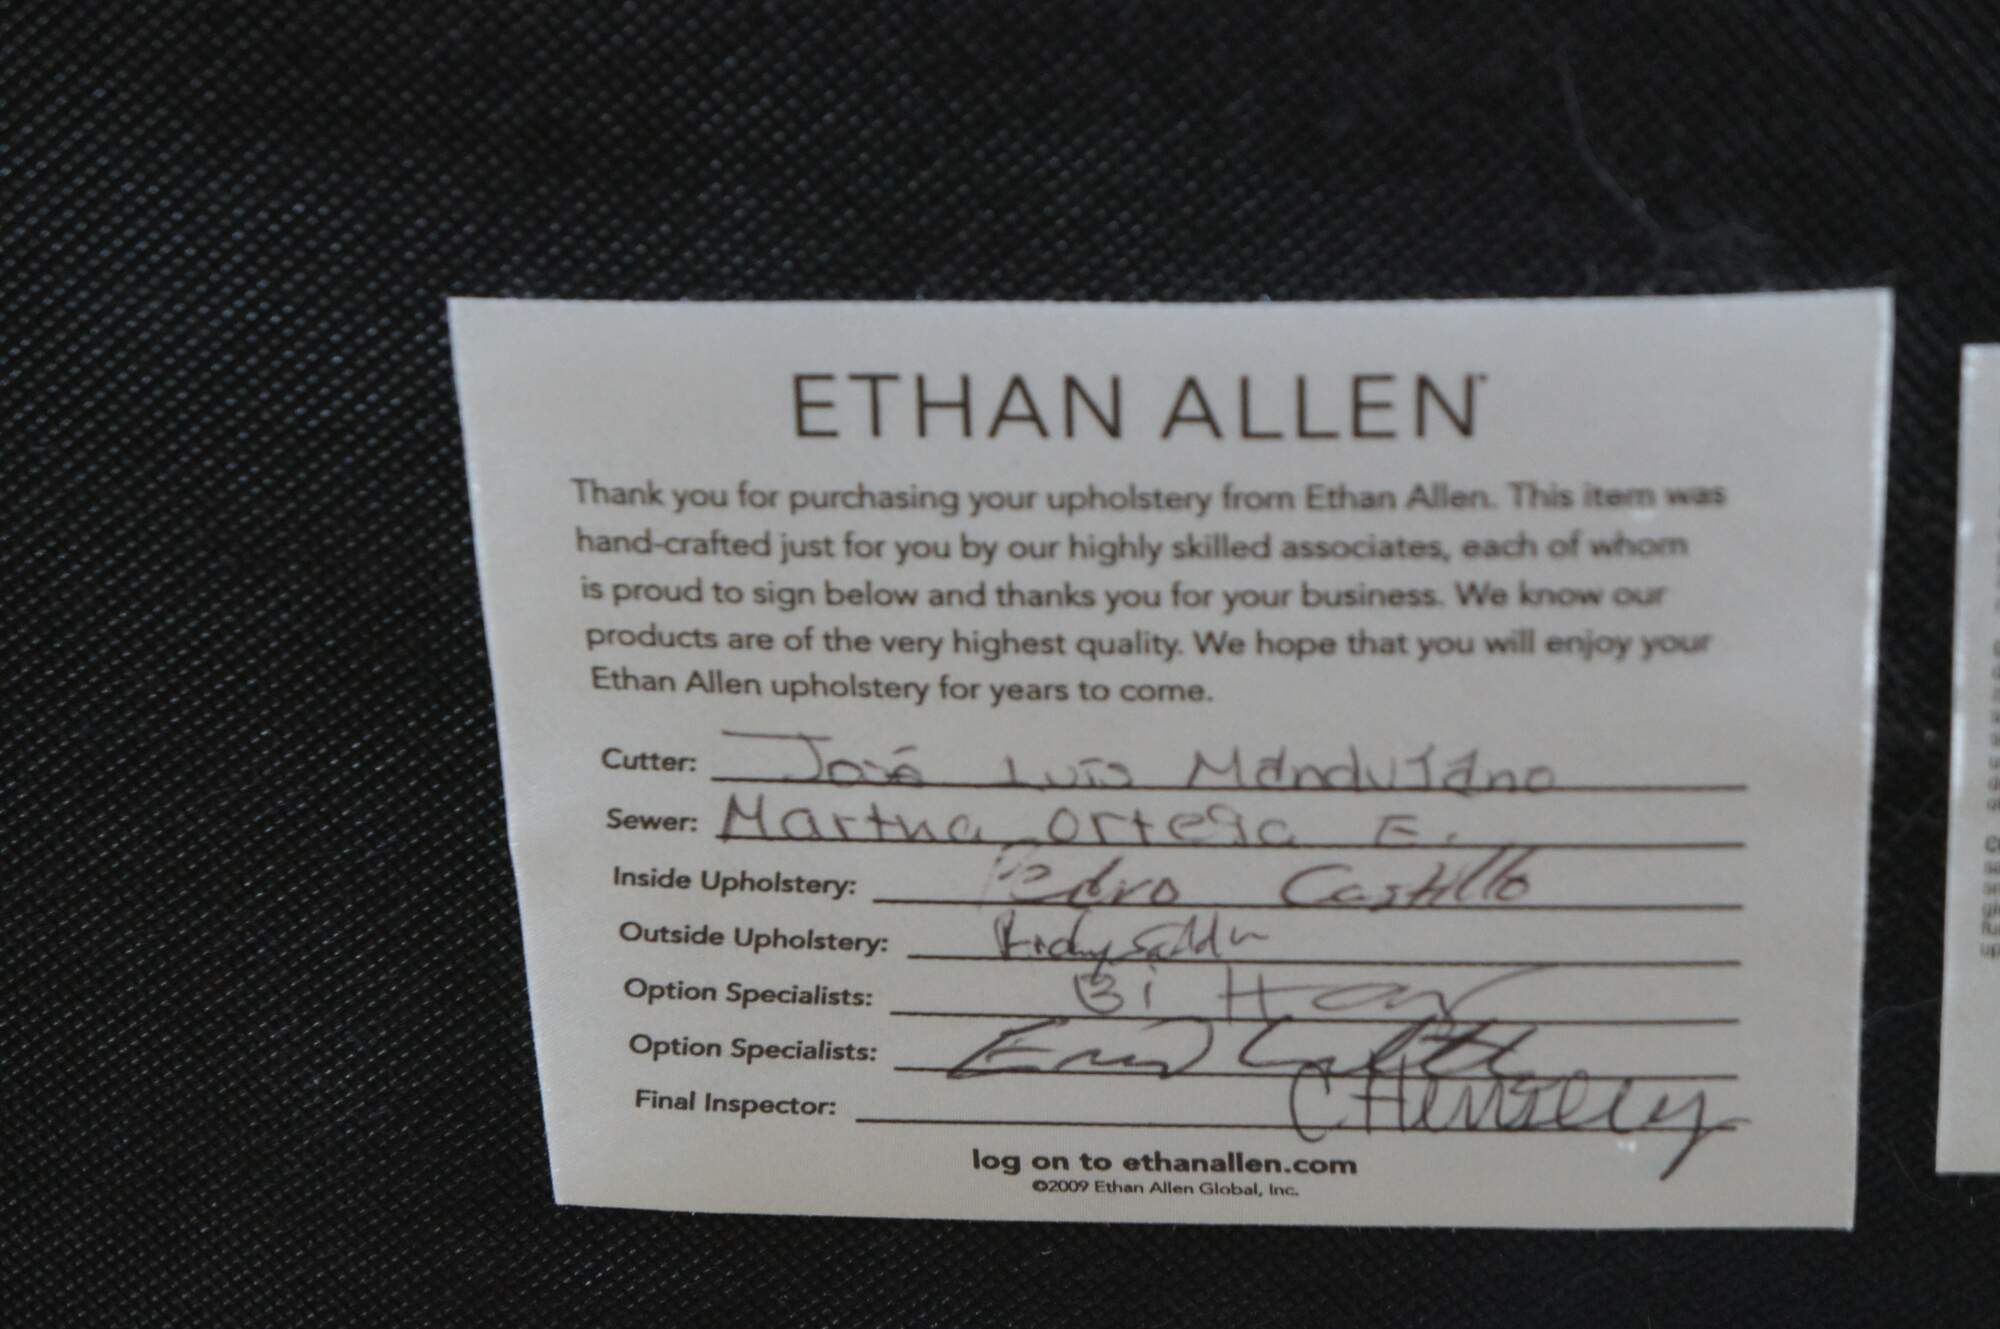 ETHAN ALLEN
Thank you for purchasing your upholstery from Ethan Allen. This item was
hand-crafted just for you by our highly skilled associates, each of whom
is proud to sign below and thanks you for your business. We know our
products are of the very highest quality. We hope that you will enjoy your
Ethan Allen upholstery for years to come.
Cutter: José Luis Mandujano
Sewer: Martha Ortega E.
Inside Upholstery: Pedro Castillo
Outside Upholstery:
Option Specialists: Bi
Option Specialists:
Final Inspector:
log on to ethanallen.com
©2009 Ethan Allen Global, Inc.